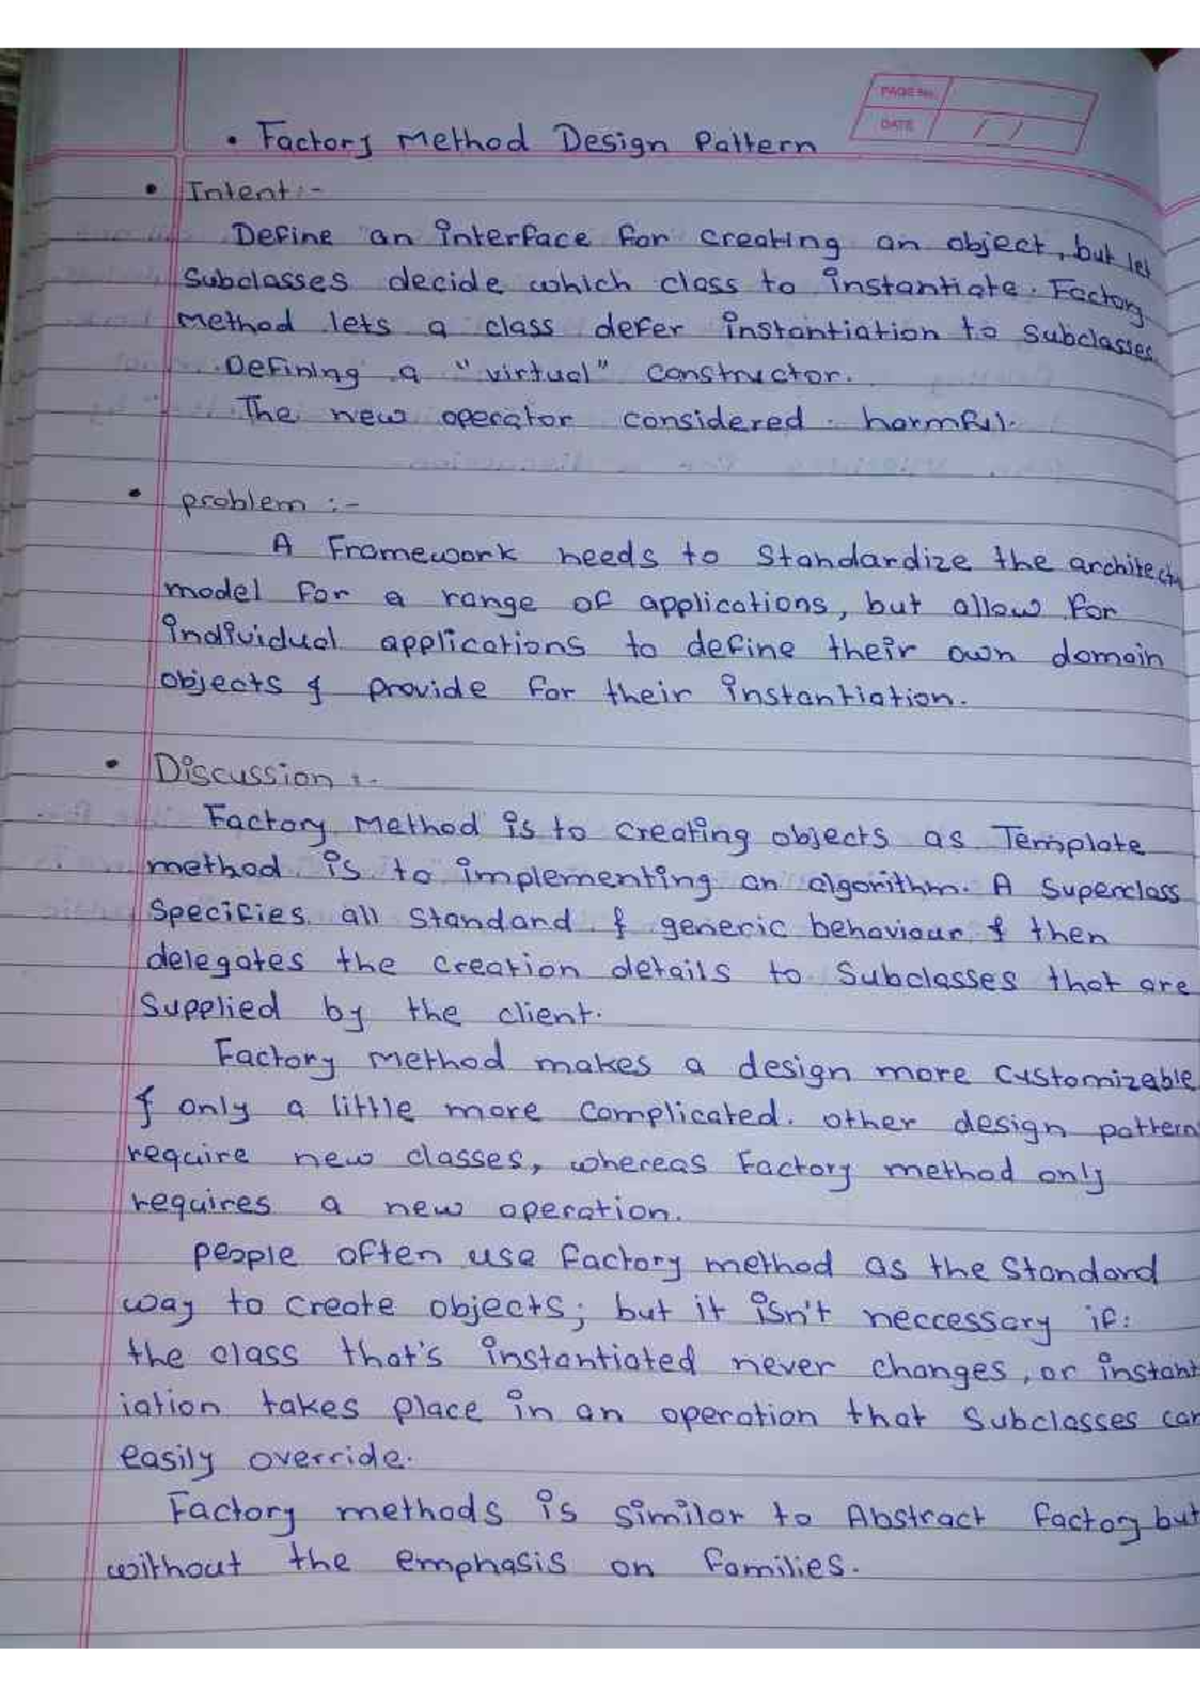 PAGE No.
DATE / /
• Factory Method Design Pattern
• Intent :-
Define an interface for creating an object, but let
Subclasses decide which class to instantiate. Factory
method lets a class defer instantiation to subclasses
Defining a "virtual" constructor.
The new operator considered harmful.
• problem :-
A Framework needs to standardize the architectu
model for a range of applications, but allow for
individual applications to define their own domain
objects & provide for their instantiation.
• Discussion :-
Factory Method is to creating objects as Template
method is to implementing an algorithm. A Superclass
Specifies all standard & generic behaviour & then
delegates the creation details to Subclasses that are
Supplied by the client.
Factory Method makes a design more customizable
& only a little more complicated. other design pattern
require new classes, whereas Factory method only
requires a new operation.
people often use Factory method as the Standard
way to create objects; but it isn't neccessary if:
the class that's instantiated never changes, or instant
iation takes place in an operation that Subclasses can
easily override.
Factory methods is similar to Abstract factory but
without the emphasis on families.